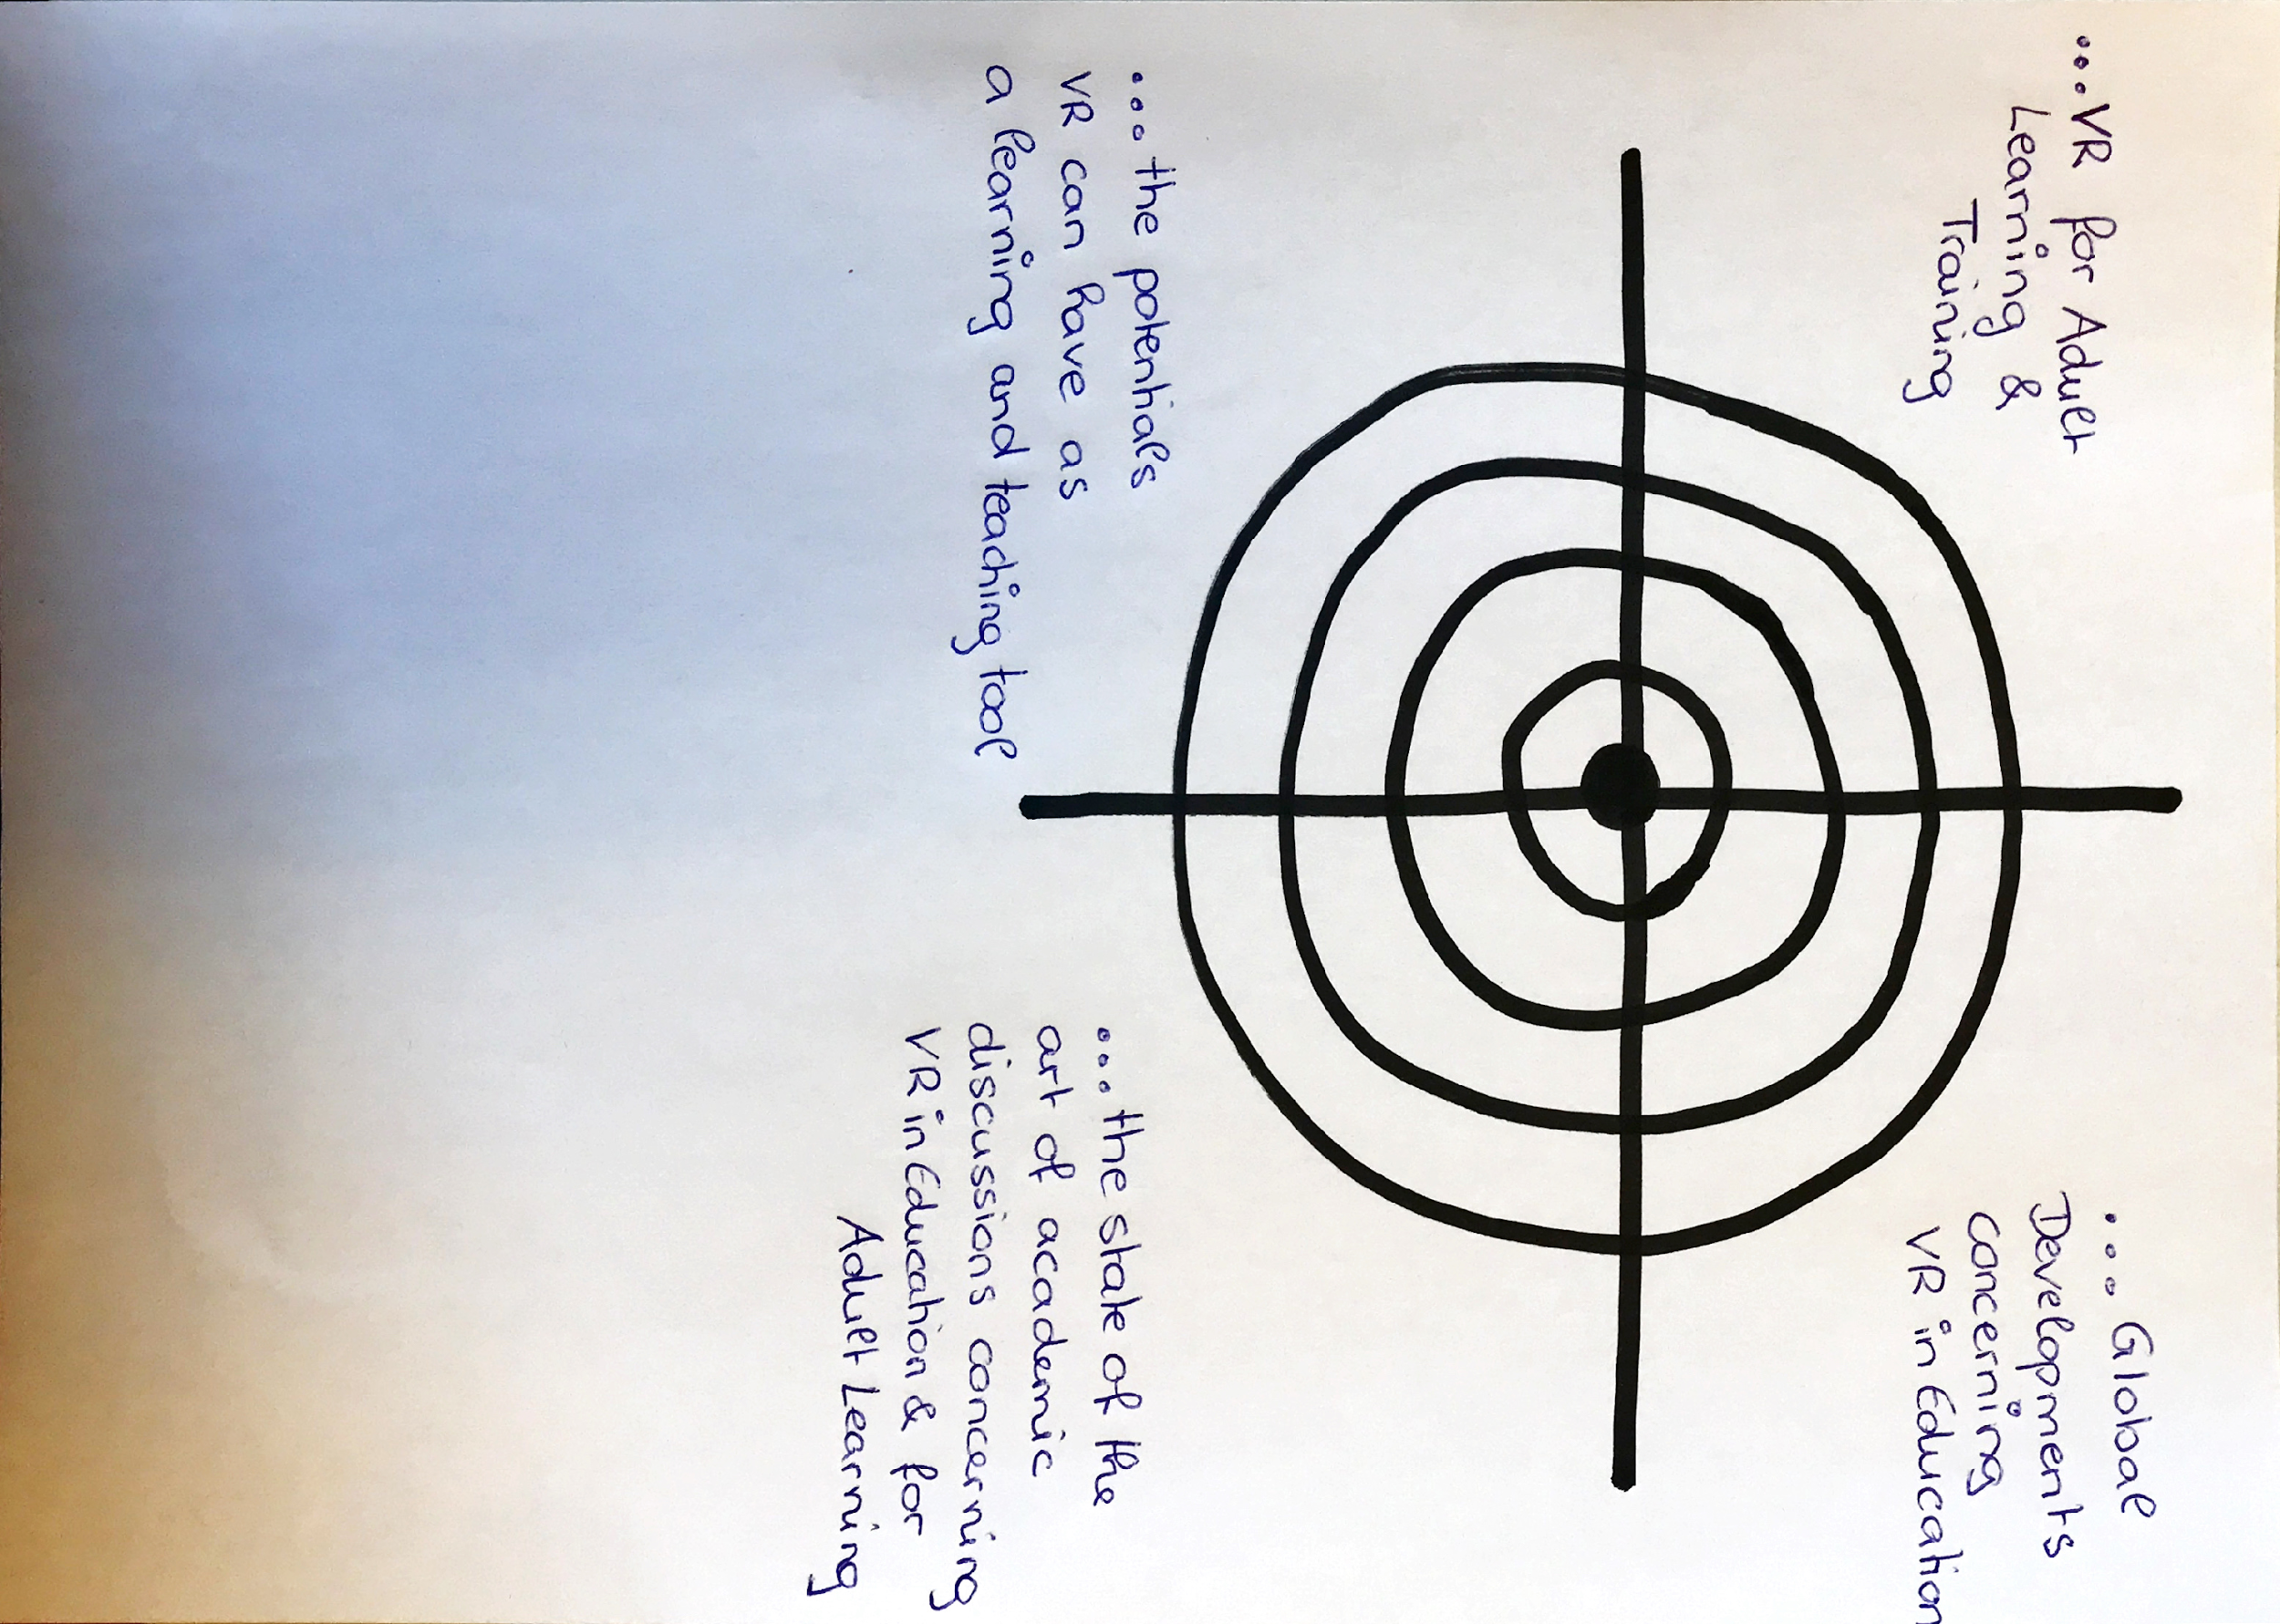 ...VR for Adult
Learning &
Training
...Global
Developments
concerning
VR in Education
...the potentials
VR can have as
a learning and teaching tool
...the state of the
art of academic
discussions concerning
VR in Education & for
Adult Learning